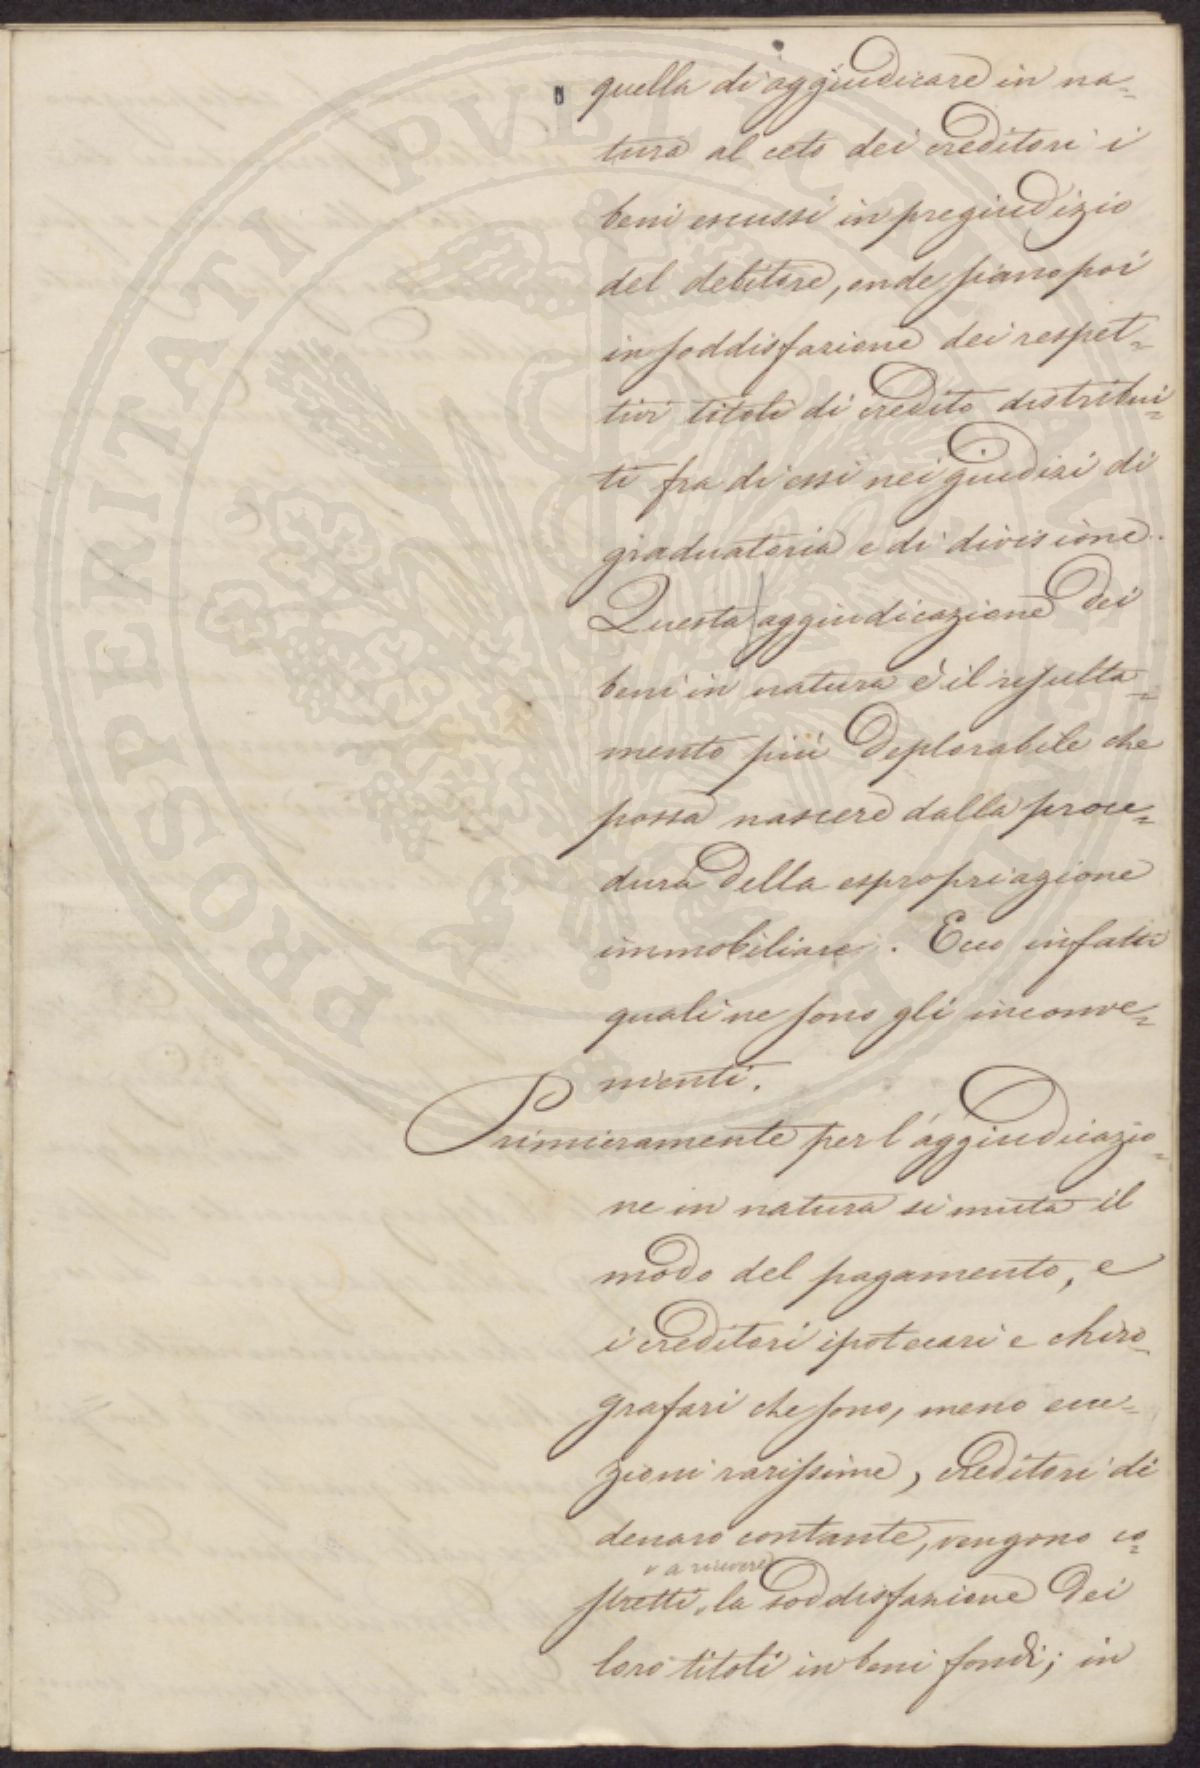 quella di aggiudicare in na-
tura al ceto dei creditori i
beni escussi in pregiudizio
del debitore, onde siano poi
in soddisfazione dei respet-
tivi titoli di credito distribui-
ti fra di essi nei giudizi di
graduatoria e di divisione.
Questa aggiudicazione dei
beni in natura è il resulta-
mento più deplorabile che
possa nascere dalla proce-
dura della espropriazione
immobiliare. Ecco infatti
quali ne sono gli inconve-
nienti.
Primieramente per l'aggiudicazio-
ne in natura si muta il
modo del pagamento, e
i creditori ipotecari e chiro-
grafari che sono, meno ecce-
zioni rarissime, creditori di
denaro contante, vengono co-
a ricevere
stretti, la soddisfazione dei
loro titoli in beni fondi; in
PROSPERITATI PVBLICAE